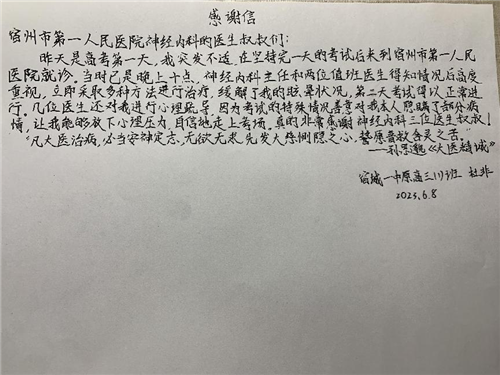 感谢信
宿州市第一人民医院神经内科的医生叔叔们：
昨天是高考第一天，我突发不适，在坚持完一天的考试后来到宿州市第一人民
医院就诊。当时已是晚上十点，神经内科主任和两位值班医生得知情况后高度
重视，立即采取多种方法进行治疗，缓解了我的眩晕状况，第二天考试得以正常进
行。几位医生还对我进行心理疏导，因为考试的特殊情况善意对我本人隐瞒了部分病
情，让我能够放下心理压力，自信地走上考场。真的非常感谢神经内科三位医生叔叔！
“凡大医治病，必当安神定志，无欲无求，先发大慈恻隐之心，誓愿普救含灵之苦。”
——孙思邈《大医精诚》
宿城一中原高三(1)班 杜非
2023.6.8